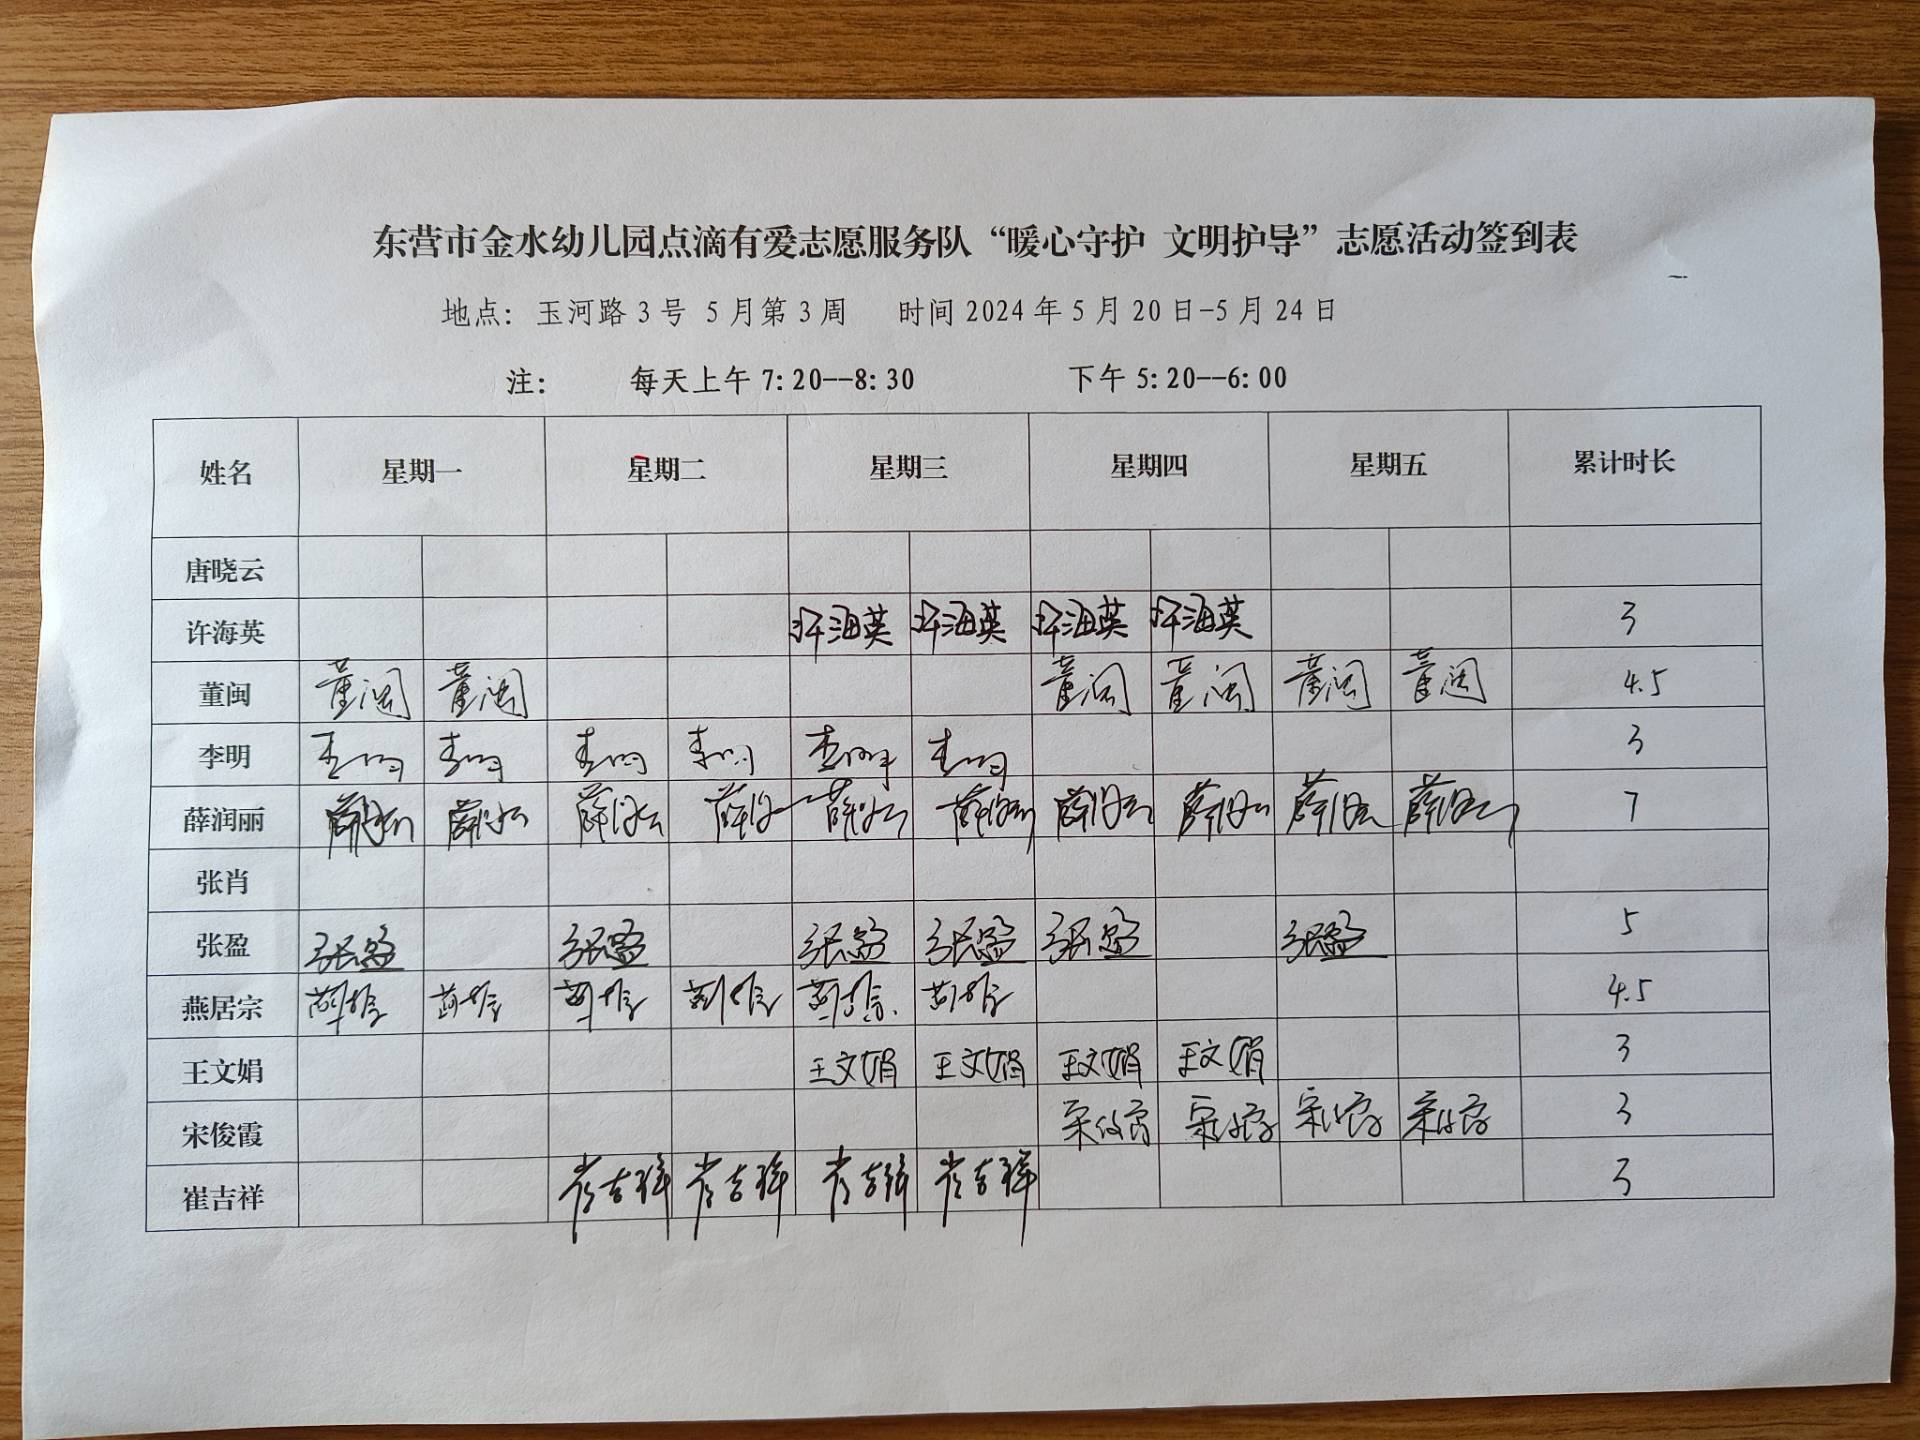 东营市金水幼儿园点滴有爱志愿服务队“暖心守护 文明护导”志愿活动签到表
地点：玉河路3号 5月第3周 时间2024年5月20日-5月24日
注： 每天上午7:20--8:30 下午5:20--6:00
姓名 星期一 星期二 星期三 星期四 星期五 累计时长
唐晓云
许海英 许海英 许海英 许海英 许海英 3
董闽 董闽 董闽 董闽 董闽 董闽 董闽 4.5
李明 李明 李明 李明 李明 李明 李明 3
薛润丽 薛润丽 薛润丽 薛润丽 薛润丽 薛润丽 薛润丽 薛润丽 薛润丽 薛润丽 薛润丽 7
张肖
张盈 张盈 张盈 张盈 张盈 张盈 张盈 5
燕居宗 4.5
王文娟 王文娟 王文娟 王文娟 王文娟 3
宋俊霞 宋俊霞 宋俊霞 宋俊霞 宋俊霞 3
崔吉祥 崔吉祥 崔吉祥 崔吉祥 崔吉祥 3